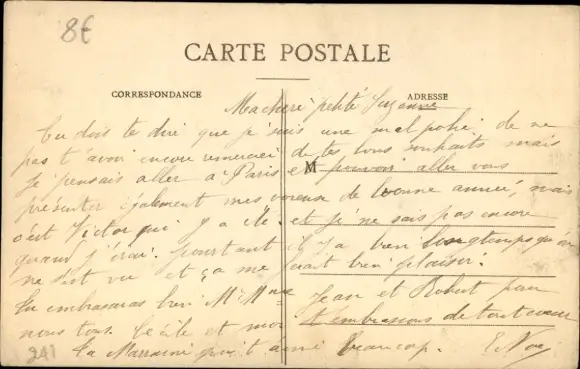 8€
CARTE POSTALE
CORRESPONDANCE
ADRESSE
Ma chère petite Suzanne
Tu dois te dire que je suis une mal polie de ne
pas t'avoir encore remercié de tes bons souhaits mais
M
je pensais aller a Paris et pouvoir aller vous
présenter également mes voeux de bonne année, mais
c'est Victor qui y a été et je ne sais pas encore
quand j'irai. pourtant il y a bien longtemps qu'on
ne s'est vu et ça me ferait bien plaisir.
Tu embrasseras bien Mr Mme Jean et Robert pour
nous tous. Cécile et moi t'embrassons de tout coeur
Ta Marraine qui t'aime beaucoup. E.
241